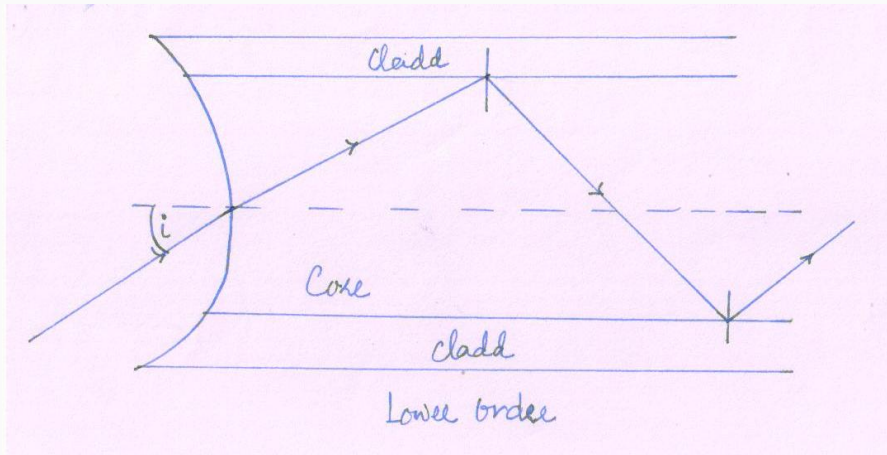 Cladd
i
Core
cladd
Lower order